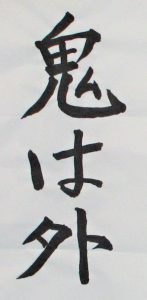 鬼は外